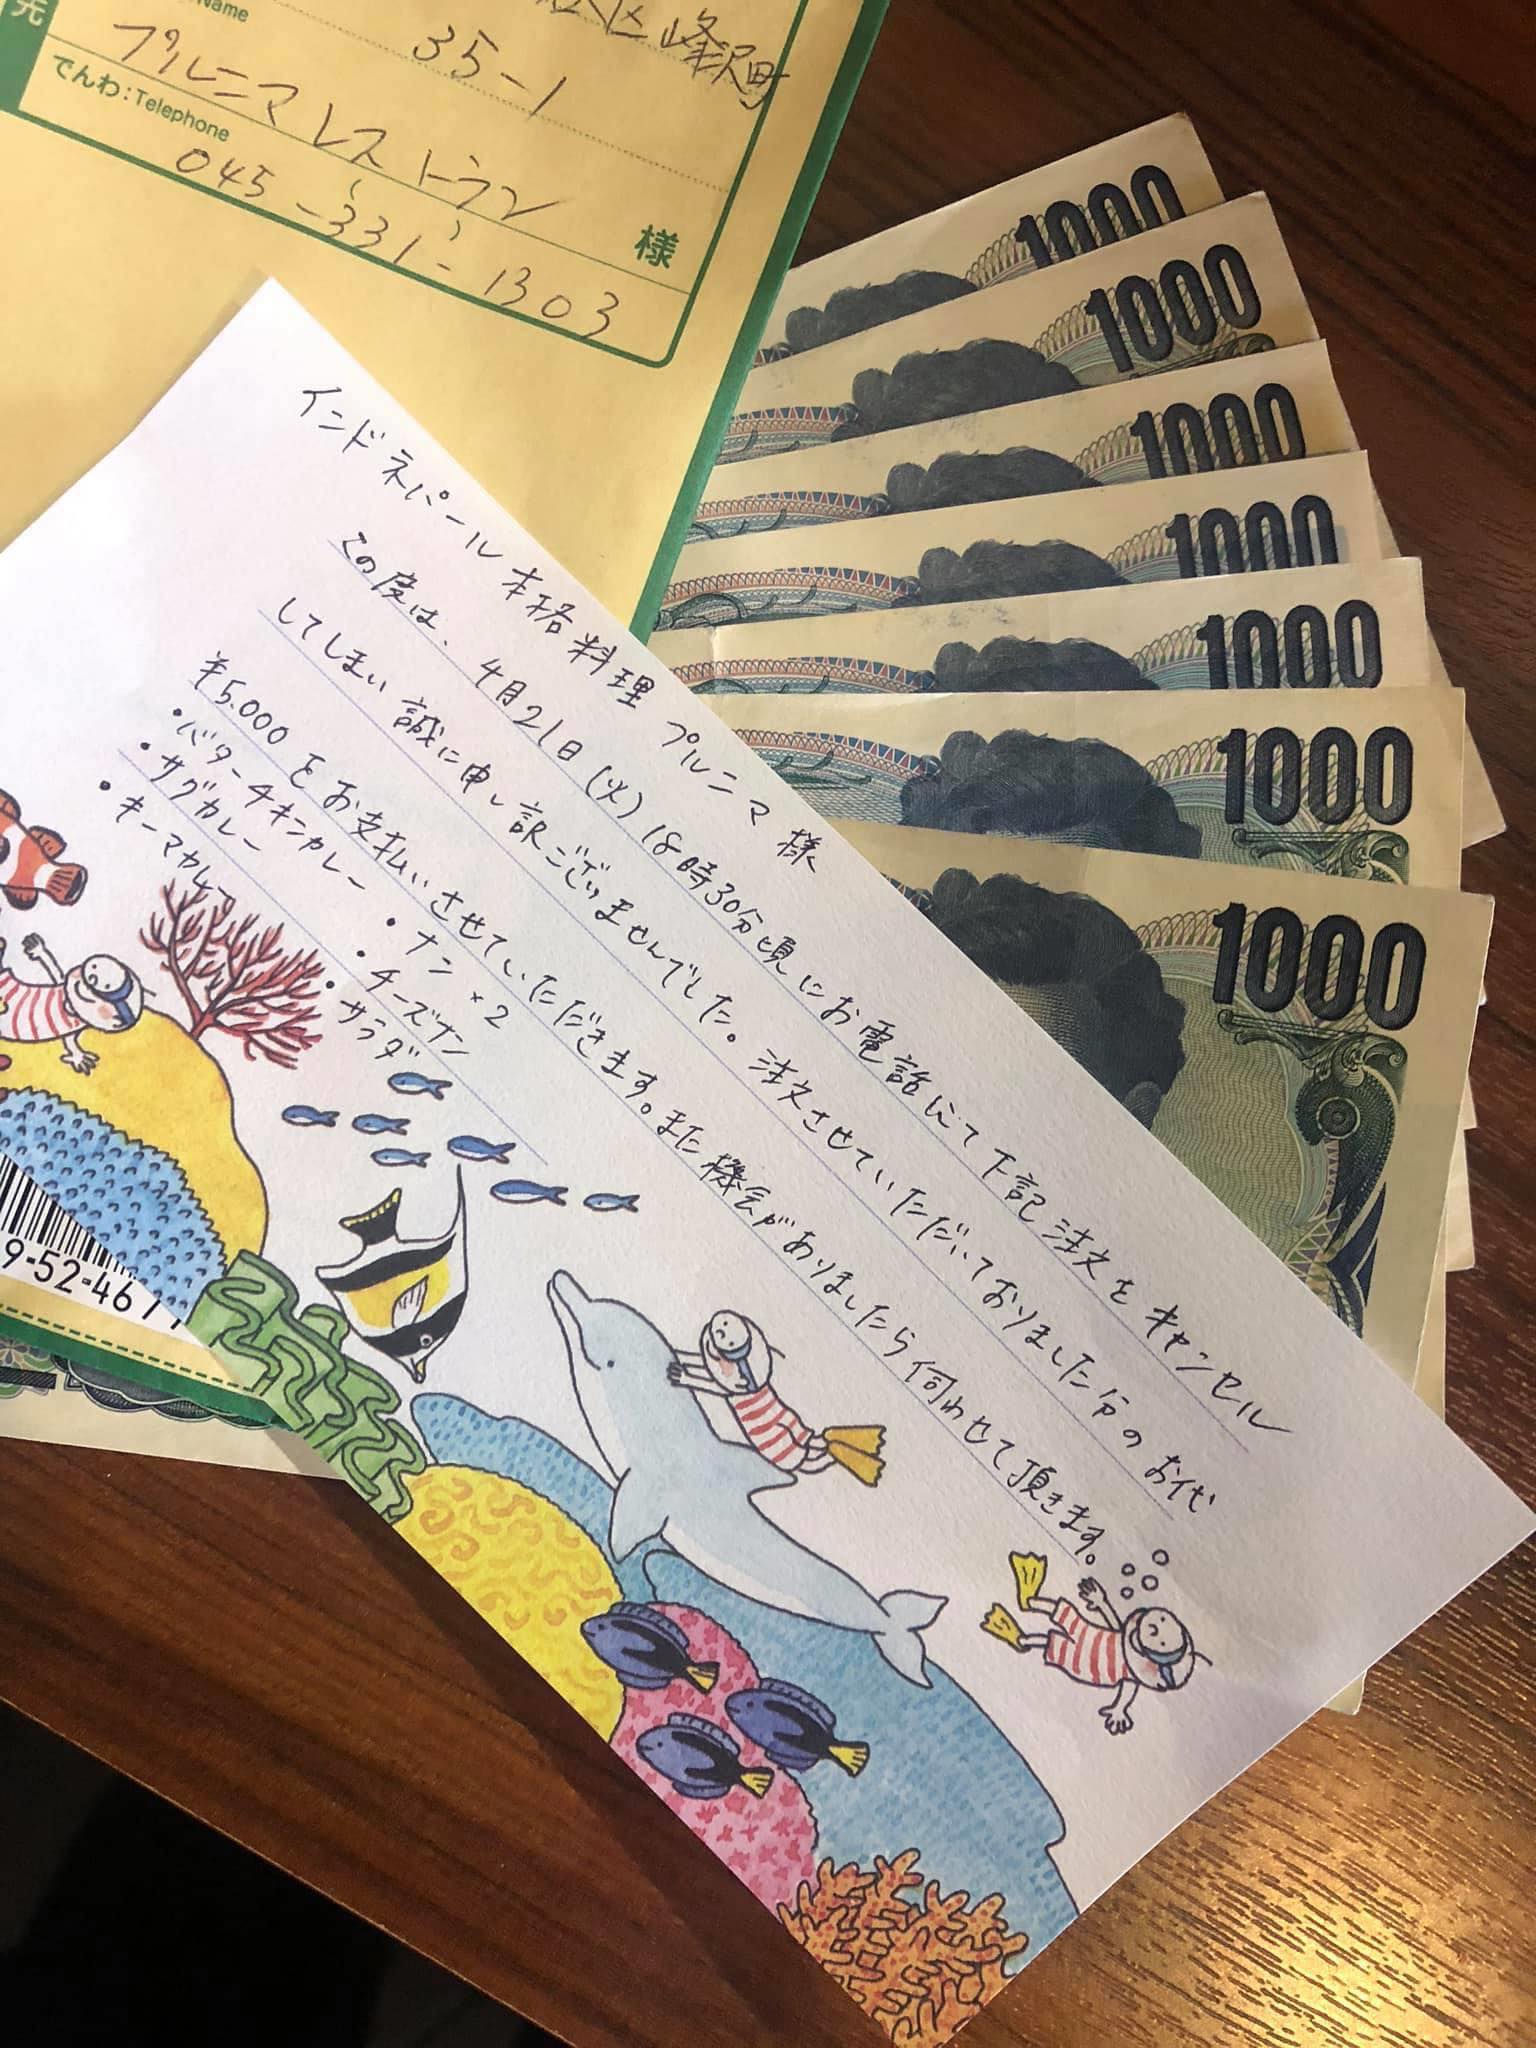 先
Name
区峰沢町
35-1
プルニマレストラン
でんわ:Telephone
様
045-331-1303
1000
1000
1000
1000
1000
1000
1000
インドネパール本格料理 プルニマ 様
この度は、4月21日(火)18時30分頃にお電話にて下記注文をキャンセル
してしまい誠に申し訳ございませんでした。注文させていただいておりました分のお代
¥5.000をお支払いさせていただきます。また機会がありましたら伺わせて頂きます。
・バターチキンカレー ・ナン ×2
・サグカレー ・チーズナン
・キーマカレー ・サラダ
9-52-461